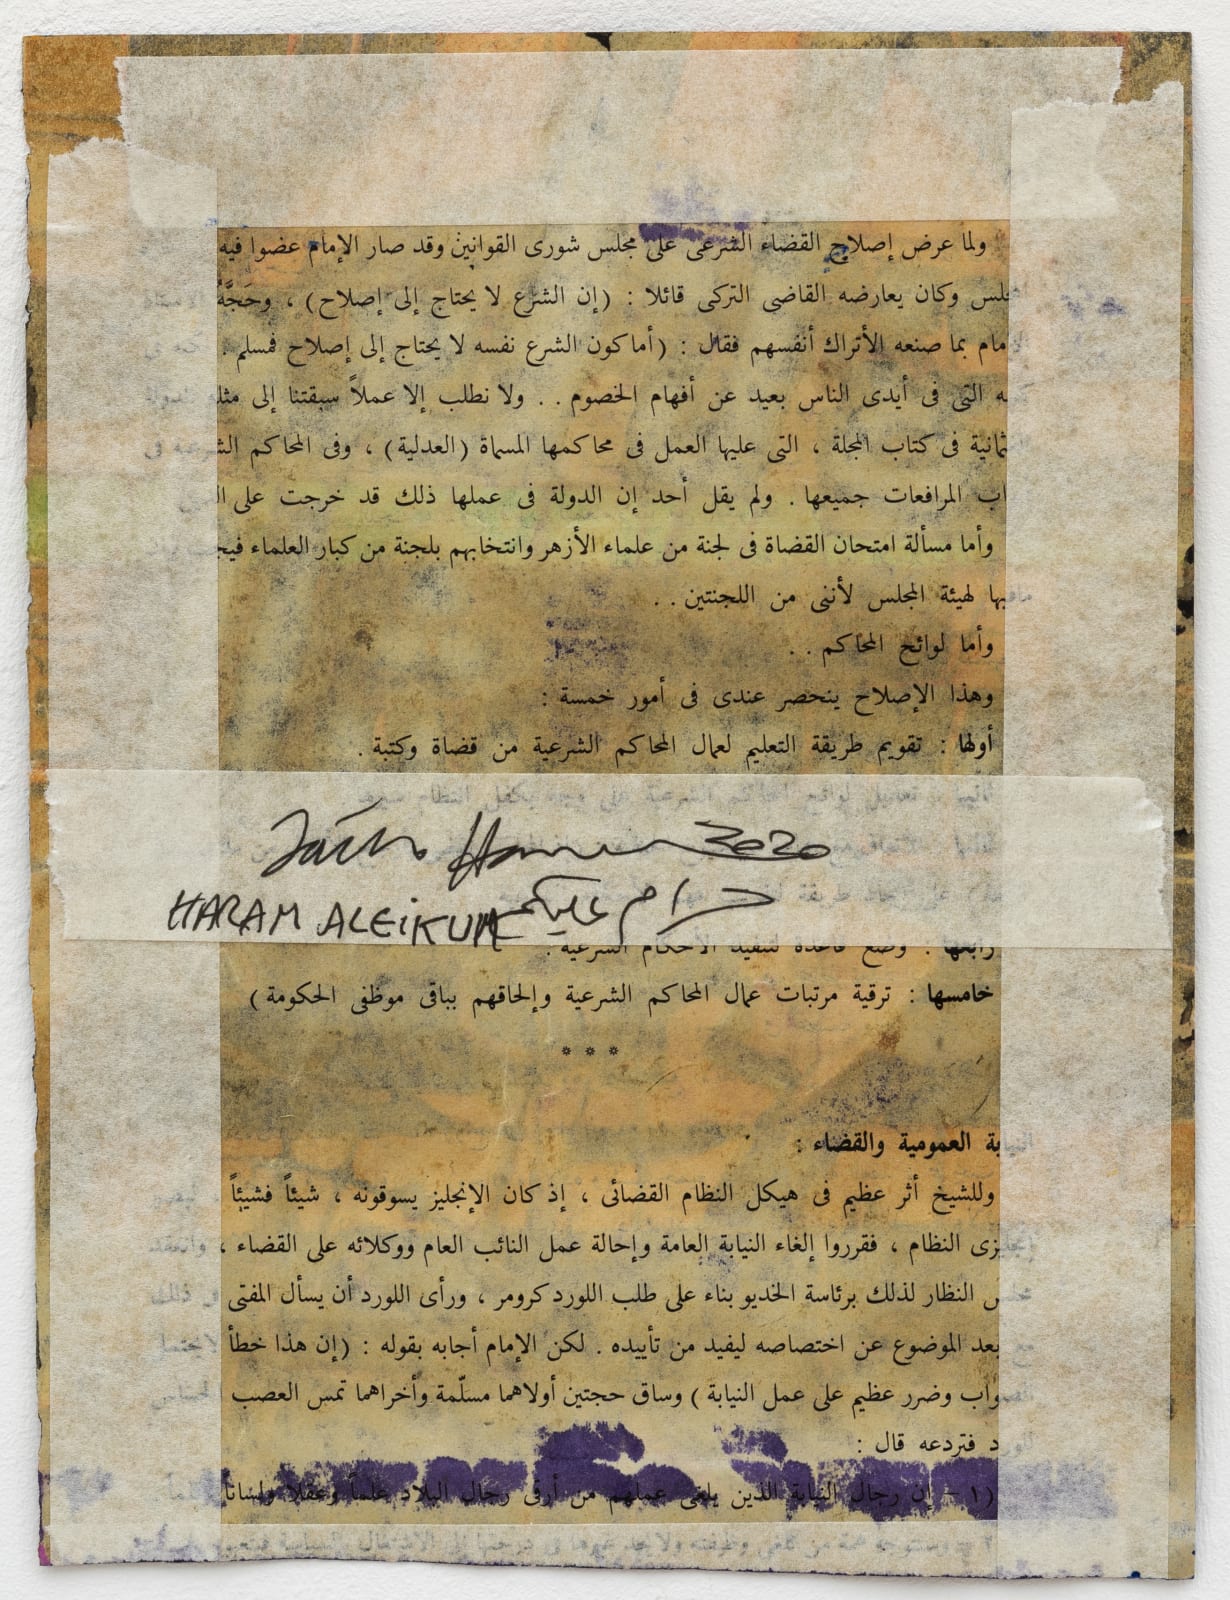 ولما عرض إصلاح القضاء الشرعى على مجلس شورى القوانين وقد صار الإمام عضوا فيه
وكان يعارضه القاضى التركى قائلا : (إن الشرع لا يحتاج إلى إصلاح) ، وحجَّهُ
بما صنعه الأتراك أنفسهم فقال : (أما كون الشرع نفسه لا يحتاج إلى إصلاح فمسلم .
التى فى أيدى الناس بعيد عن أفهام الخصوم . . ولا نطلب إلا عملاً سبقتنا إلى
فى كتاب المجلة ، التى عليها العمل فى محاكمها المسماة (العدلية) ، وفى المحاكم
المرافعات جميعها . ولم يقل أحد إن الدولة فى عملها ذلك قد خرجت على
وأما مسألة امتحان القضاة فى لجنة من علماء الأزهر وانتخابهم بلجنة من كبار العلماء
لهيئة المجلس لأننى من اللجنتين . .
وأما لوائح المحاكم . .
وهذا الإصلاح ينحصر عندى فى أمور خمسة :
أولها : تقويم طريقة التعليم لعمال المحاكم الشرعية من قضاة وكتبة .
2020
HARAM ALEIKUM حرام عليكم
رابعها : وضع قاعدة لتنفيذ الأحكام الشرعية .
خامسها : ترقية مرتبات عمال المحاكم الشرعية وإلحاقهم بباقى موظفى الحكومة )
* * *
العمومية والقضاء :
وللشيخ أثر عظيم فى هيكل النظام القضائى ، إذ كان الإنجليز يسوقونه ، شيئاً فشيئاً
النظام ، فقرروا إلغاء النيابة العامة وإحالة عمل النائب العام ووكلائه على القضاء ،
النظار لذلك برئاسة الخديو بناء على طلب اللورد كرومر ، ورأى اللورد أن يسأل المفتى
بعد الموضوع عن اختصاصه ليفيد من تأييده . لكن الإمام أجابه بقوله : (إن هذا خطأ
وضرر عظيم على عمل النيابة ) وساق حجتين أولاهما مسلّمة وأخراهما تمس العصب
فتردعه قال :
(١ – إن رجال النيابة الذين يلغى عملهم من أرقى رجال البلاد علماً وعقلاً ولساناً